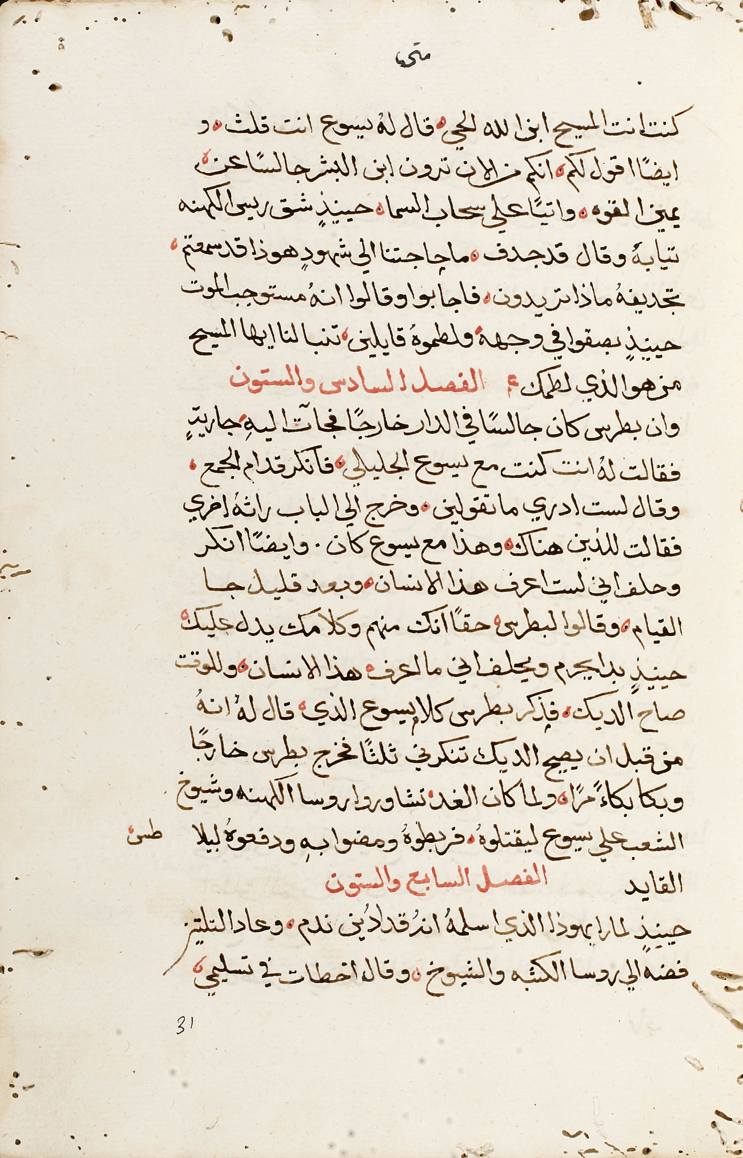 متي
كنت انت المسيح ابن الله الحي قال له يسوع انت قلت و
ايضًا اقول لكم انكم من الان ترون ابن البشر جالسًا عن
يمين القوه واتيًا علي سحاب السما حينيذٍ شق ريس الكهنه
تيابهُ وقال قد جدف ما حاجتنا الي شهودٍ هوذا قد سمعتم
تجديفهُ ماذا تريدون فاجابوا وقالوا انهُ مستوجب الموت
حينيذٍ بصقوا في وجهه ولطموهُ قايلين تنبا لنا ايها المسيح
من هو الذي لطمك الفصل السادس والستون
وان بطرس كان جالسًا في الدار خارجًا فجات اليهِ جاريةٍ
فقالت لهُ انت كنت مع يسوع الجليلي فانكر قدام الجمع
وقال لست ادري ما تقولين وخرج الي الباب راتهُ اخري
فقالت للذين هناك وهذا مع يسوع كان. وايضًا انكر
وحلف اني لست اعرف هذا الانسان وبعد قليل جا
القيام وقالوا لبطرس حقًا انك منهم وكلامك يدل عليك
حينيذٍ بدا يحرم ويحلف اني ما اعرف هذا الانسان وللوقت
صاح الديك فذكر بطرس كلام يسوع الذي قال لهُ انهُ
من قبل ان يصيح الديك تنكرني ثلثًا فخرج بطرس خارجًا
وبكا بكاءً مرًا ولما كان الغد تشاوروا روسا الكهنه وشيوخ
الشعب علي يسوع ليقتلوهُ فربطوهُ ومضوا بهِ ودفعوهُ ليلا
القايد الفصل السابع والستون
حينيذٍ لما راي يهوذا الذي اسلمهُ انهُ قد اُدين ندم وعاد التلتين
فضه الي روسا الكتبه والشيوخ وقال اخطات في تسليمي
31